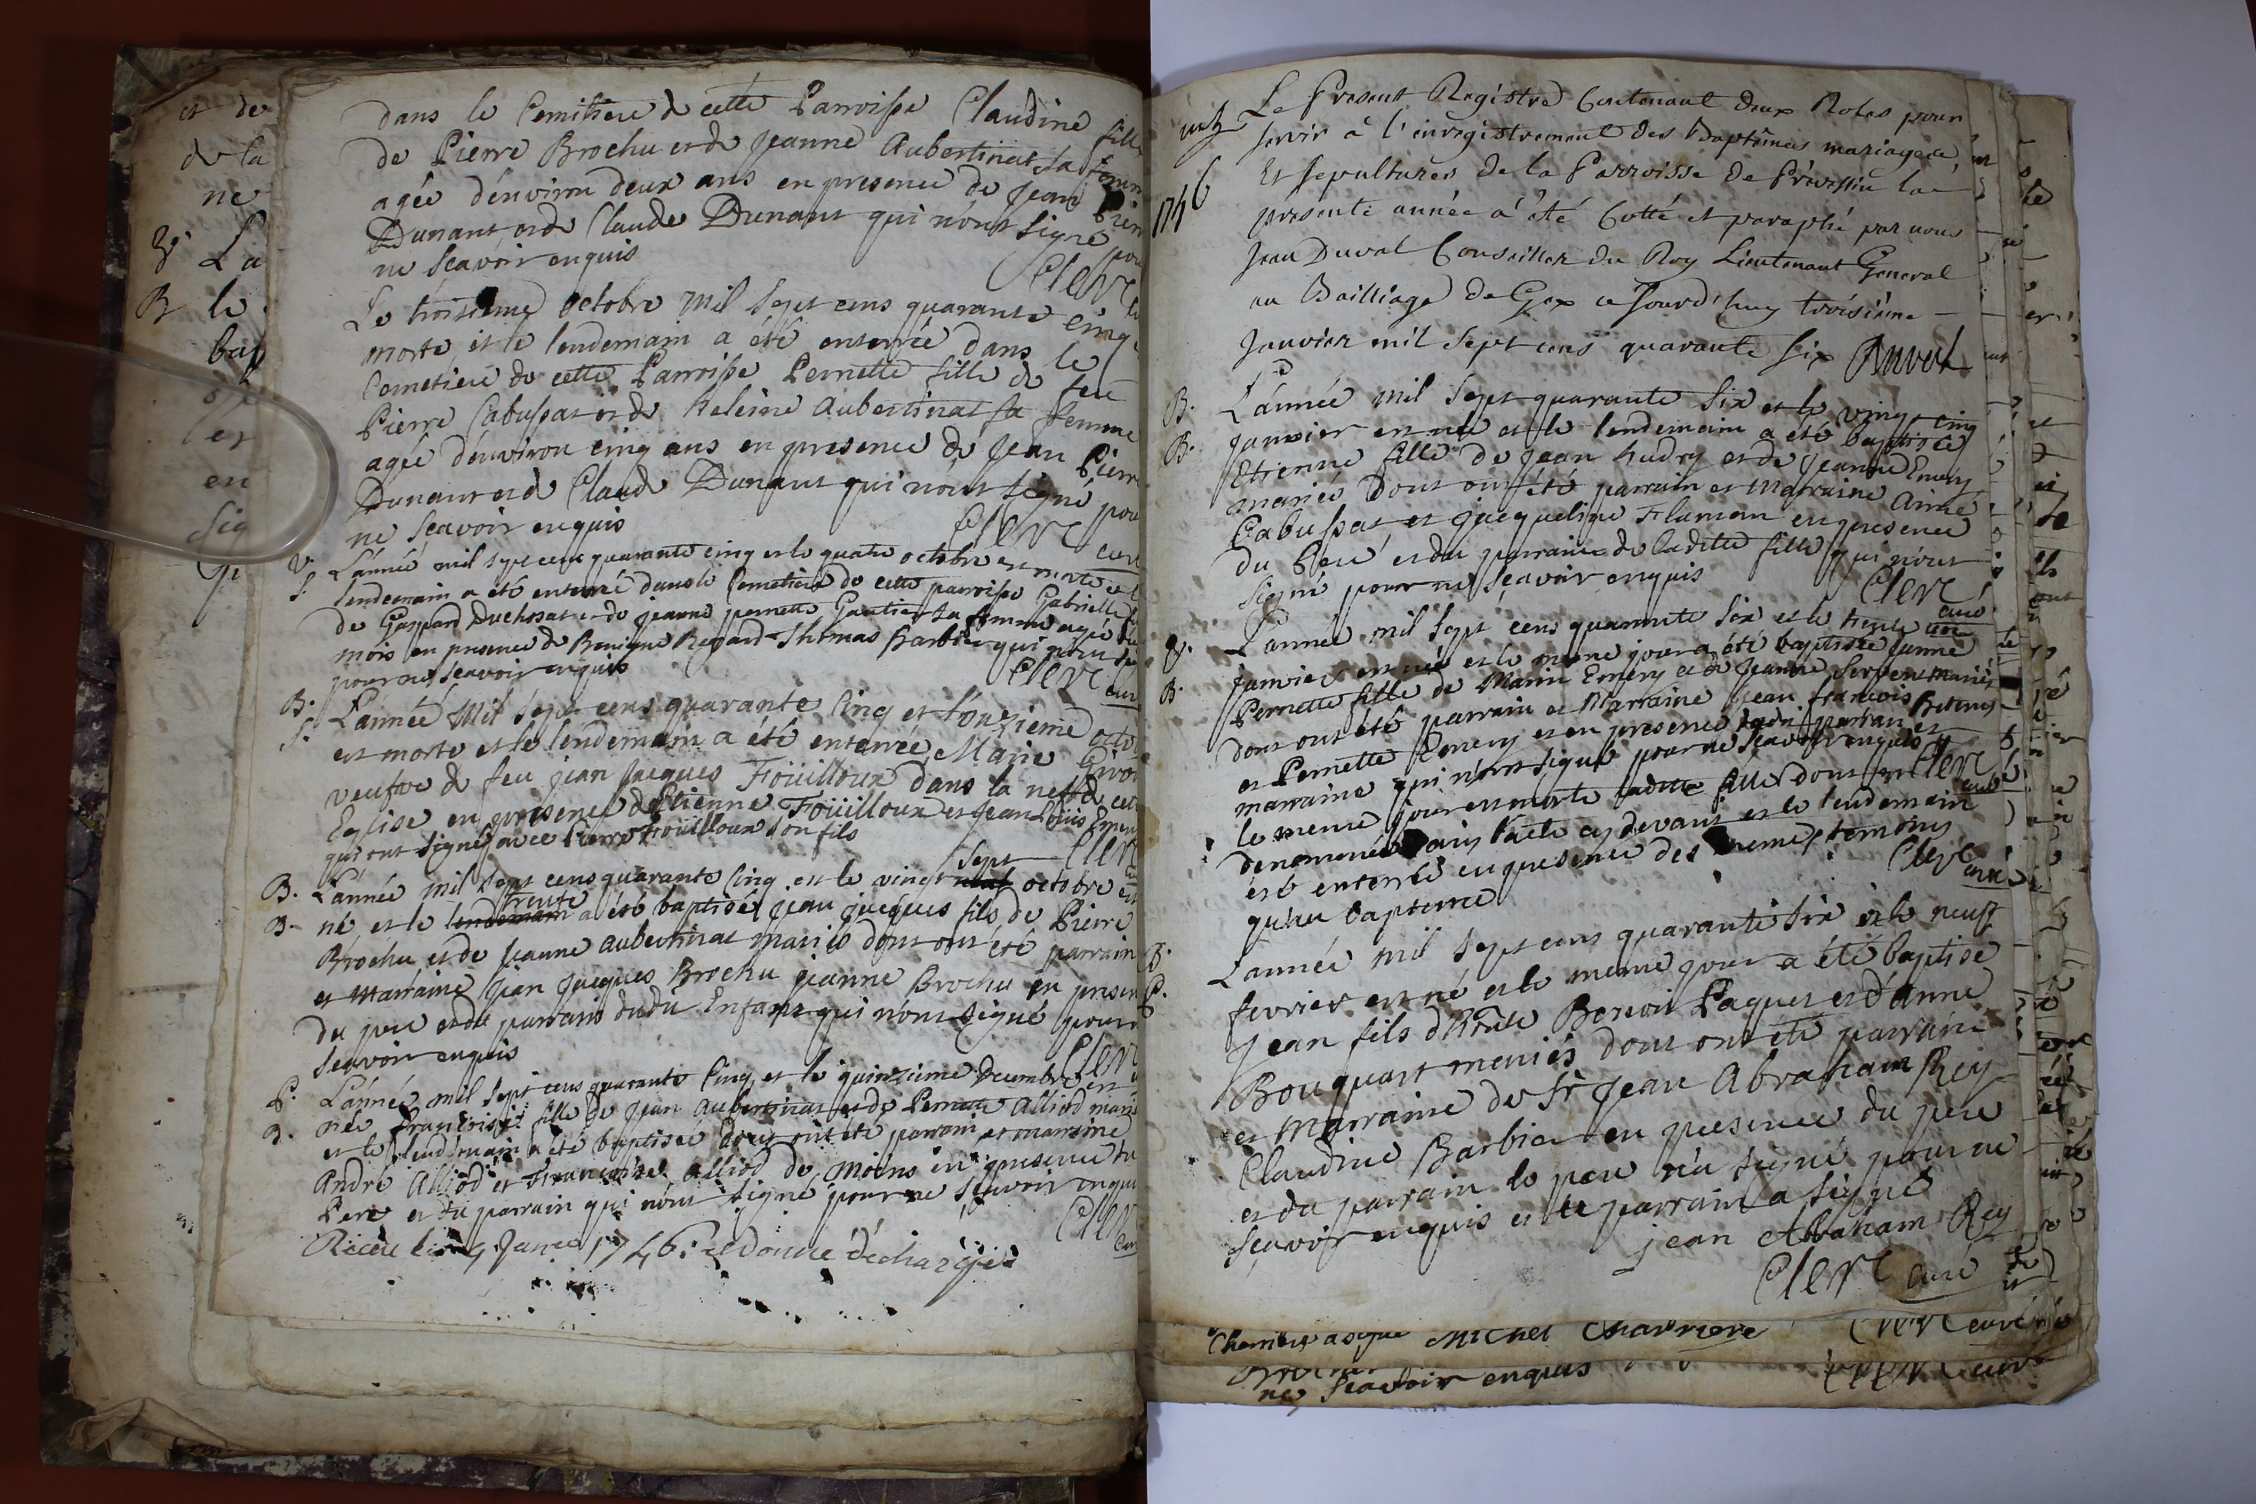 dans le Cemitiere de cette Parroisse Claudine fille
de Pierre Brochu et de Jeanne Aubertinat sa femme
agée d'environ deux ans en presence de Jean Pierre
Dunant et de Claude Dunant qui n'ont signé pour
ne scavoir enquis
Clerc
Le troisieme octobre mil sept cens quarante cinq
morte et le lendemain a été enterrée dans le
Cemetiere de cette Parroisse Pernette fille de feu
Pierre Cabussat et de heleine Aubertinat sa femme
agée d'environ cinq ans en presence de Jean Pierre
Dunant et de Claude Dunant qui n'ont signé pour
ne scavoir enquis
Clerc curé
L'année mil sept cens quarante cinq et le quatre octobre est morte et le
lendemain a été enterré dans le Cemetiere de cette parroisse Gabrielle
de Gaspard Duchosat et de jeanne pernette Gautier sa femme agée de
mois en presence de Benigne Regard Thomas Barbier qui n'ont
pour ne scavoir enquis
Clerc curé
B.
S.
L'année Mil sept cens quarante cinq et l'onzieme octobre
est morte et le lendemain a été enterrée Marie
veufve de feu jean jacques Foüilloux dans la nef de cette
Eglise en presence d'Etienne Foüilloux et Jean Louis Emery
qui ont signé avec Pierre Foüilloux son fils
Clerc
B. L'année mil sept cens quarante cinq et le vingt sept octobre est
B. né et le trente a été baptisé jean jacques fils de Pierre
Brochu et de Jeanne Aubertinat mariés dont ont été parrain
et Marraine jean jacques Brochu jeanne Brochu en presence
du pere et du parrain dudit Enfant qui n'ont signé pour
scavoir enquis
Clerc
L'année mil sept cens quarante cinq et le quinzieme decembre est
B. née Françoise fille de jean Aubertinat et de Pernette Alliod mariés
et le lendemain a été baptisée dont ont été parrain et marraine
André Alliod et Françoise Alliod de moëns en presence du
Pere et du parrain qui n'ont signé pour ne scavoir enquis
Clerc
curé
Receu le 4 Janvier 1746. et donné décharge
1746
Le Present Registre Contenant deux Roles pour
servir à l'enregistrement des Baptêmes mariages
Et sepultures de la Parroisse de Prévessin la
présente année a été Cotté et paraphé par nous
Jean Duval Conseiller du Roy Lieutenant General
au Bailliage de Gex ce Jourd'huy troisieme
Janvier mil sept cens quarante six Duval
B. L'année mil sept quarante six et le vingt cinq
B. janvier est née et le lendemain a été baptisée
Etienne fille de jean hudry et de jeanne Emery
mariés dont ont été parrain et Marraine Aimé
Cabussat et jacqueline Flumen en presence
du Pere et du parrain de ladite fille qui n'ont
signé pour ne sçavoir enquis
Clerc
curé
L'année mil sept cens quarante six et le trente
B. janvier est née et le meme jour a été baptisée jeanne
Pernette fille de Marin Emery et de Jeanne Serven mariés
dont ont été parrain et Marraine jean François
et Pernette Emery et en presence dudit parrain et
marraine qui n'ont signé pour ne scavoir enquis
Clerc
curé
le meme jour est morte ladite fille dont
denommée dans l'acte cy devant et le lendemain
été enterrée en presence des memes temoins
qu'au bapteme
Clerc curé
B. L'année mil sept cens quarante six et le neuf
B. fevrier est né et le meme jour a été baptisé
Jean fils d'honnête Benoit Paquet et d'anne
Bouquart mariés dont ont été parrain
et marraine de Sr Jean Abraham Rey
Claudine Barbier en presence du pere
et du parrain le pere n'a signé pour ne
scavoir enquis et le parrain a signé
jean Abraham Rey
Clerc curé
Charriere a signé Michel Charriere Clerc curé
ne scavoir enquis Clerc curé